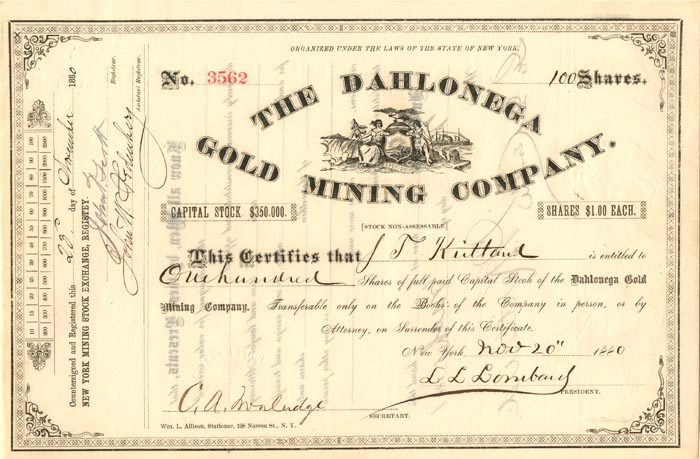 ORGANIZED UNDER THE LAWS OF THE STATE OF NEW YORK.
No. 3562
100 Shares.
THE DAHLONEGA
GOLD MINING COMPANY.
CAPITAL STOCK $350.000.
SHARES $1.00 EACH.
[STOCK NON-ASSESSABLE]
This Certifies that J T Kirtland is entitled to
One hundred Shares of full paid Capital Stock of the Dahlonega Gold
Mining Company. Transferable only on the Books of the Company in person, or by
Attorney, on Surrender of this Certificate.
New York, Nov 20" 1880
L L Lombard
PRESIDENT.
C. A.
SECRETARY.
Wm. L. Allison, Stationer, 128 Nassau St., N. Y.
Countersigned and Registered this 22 day of November 1880
NEW YORK MINING STOCK EXCHANGE, REGISTRY.
Registrar.
John W.
Assistant Registrar.
10 15 20 25 30 40 50 60 70 80 90 100